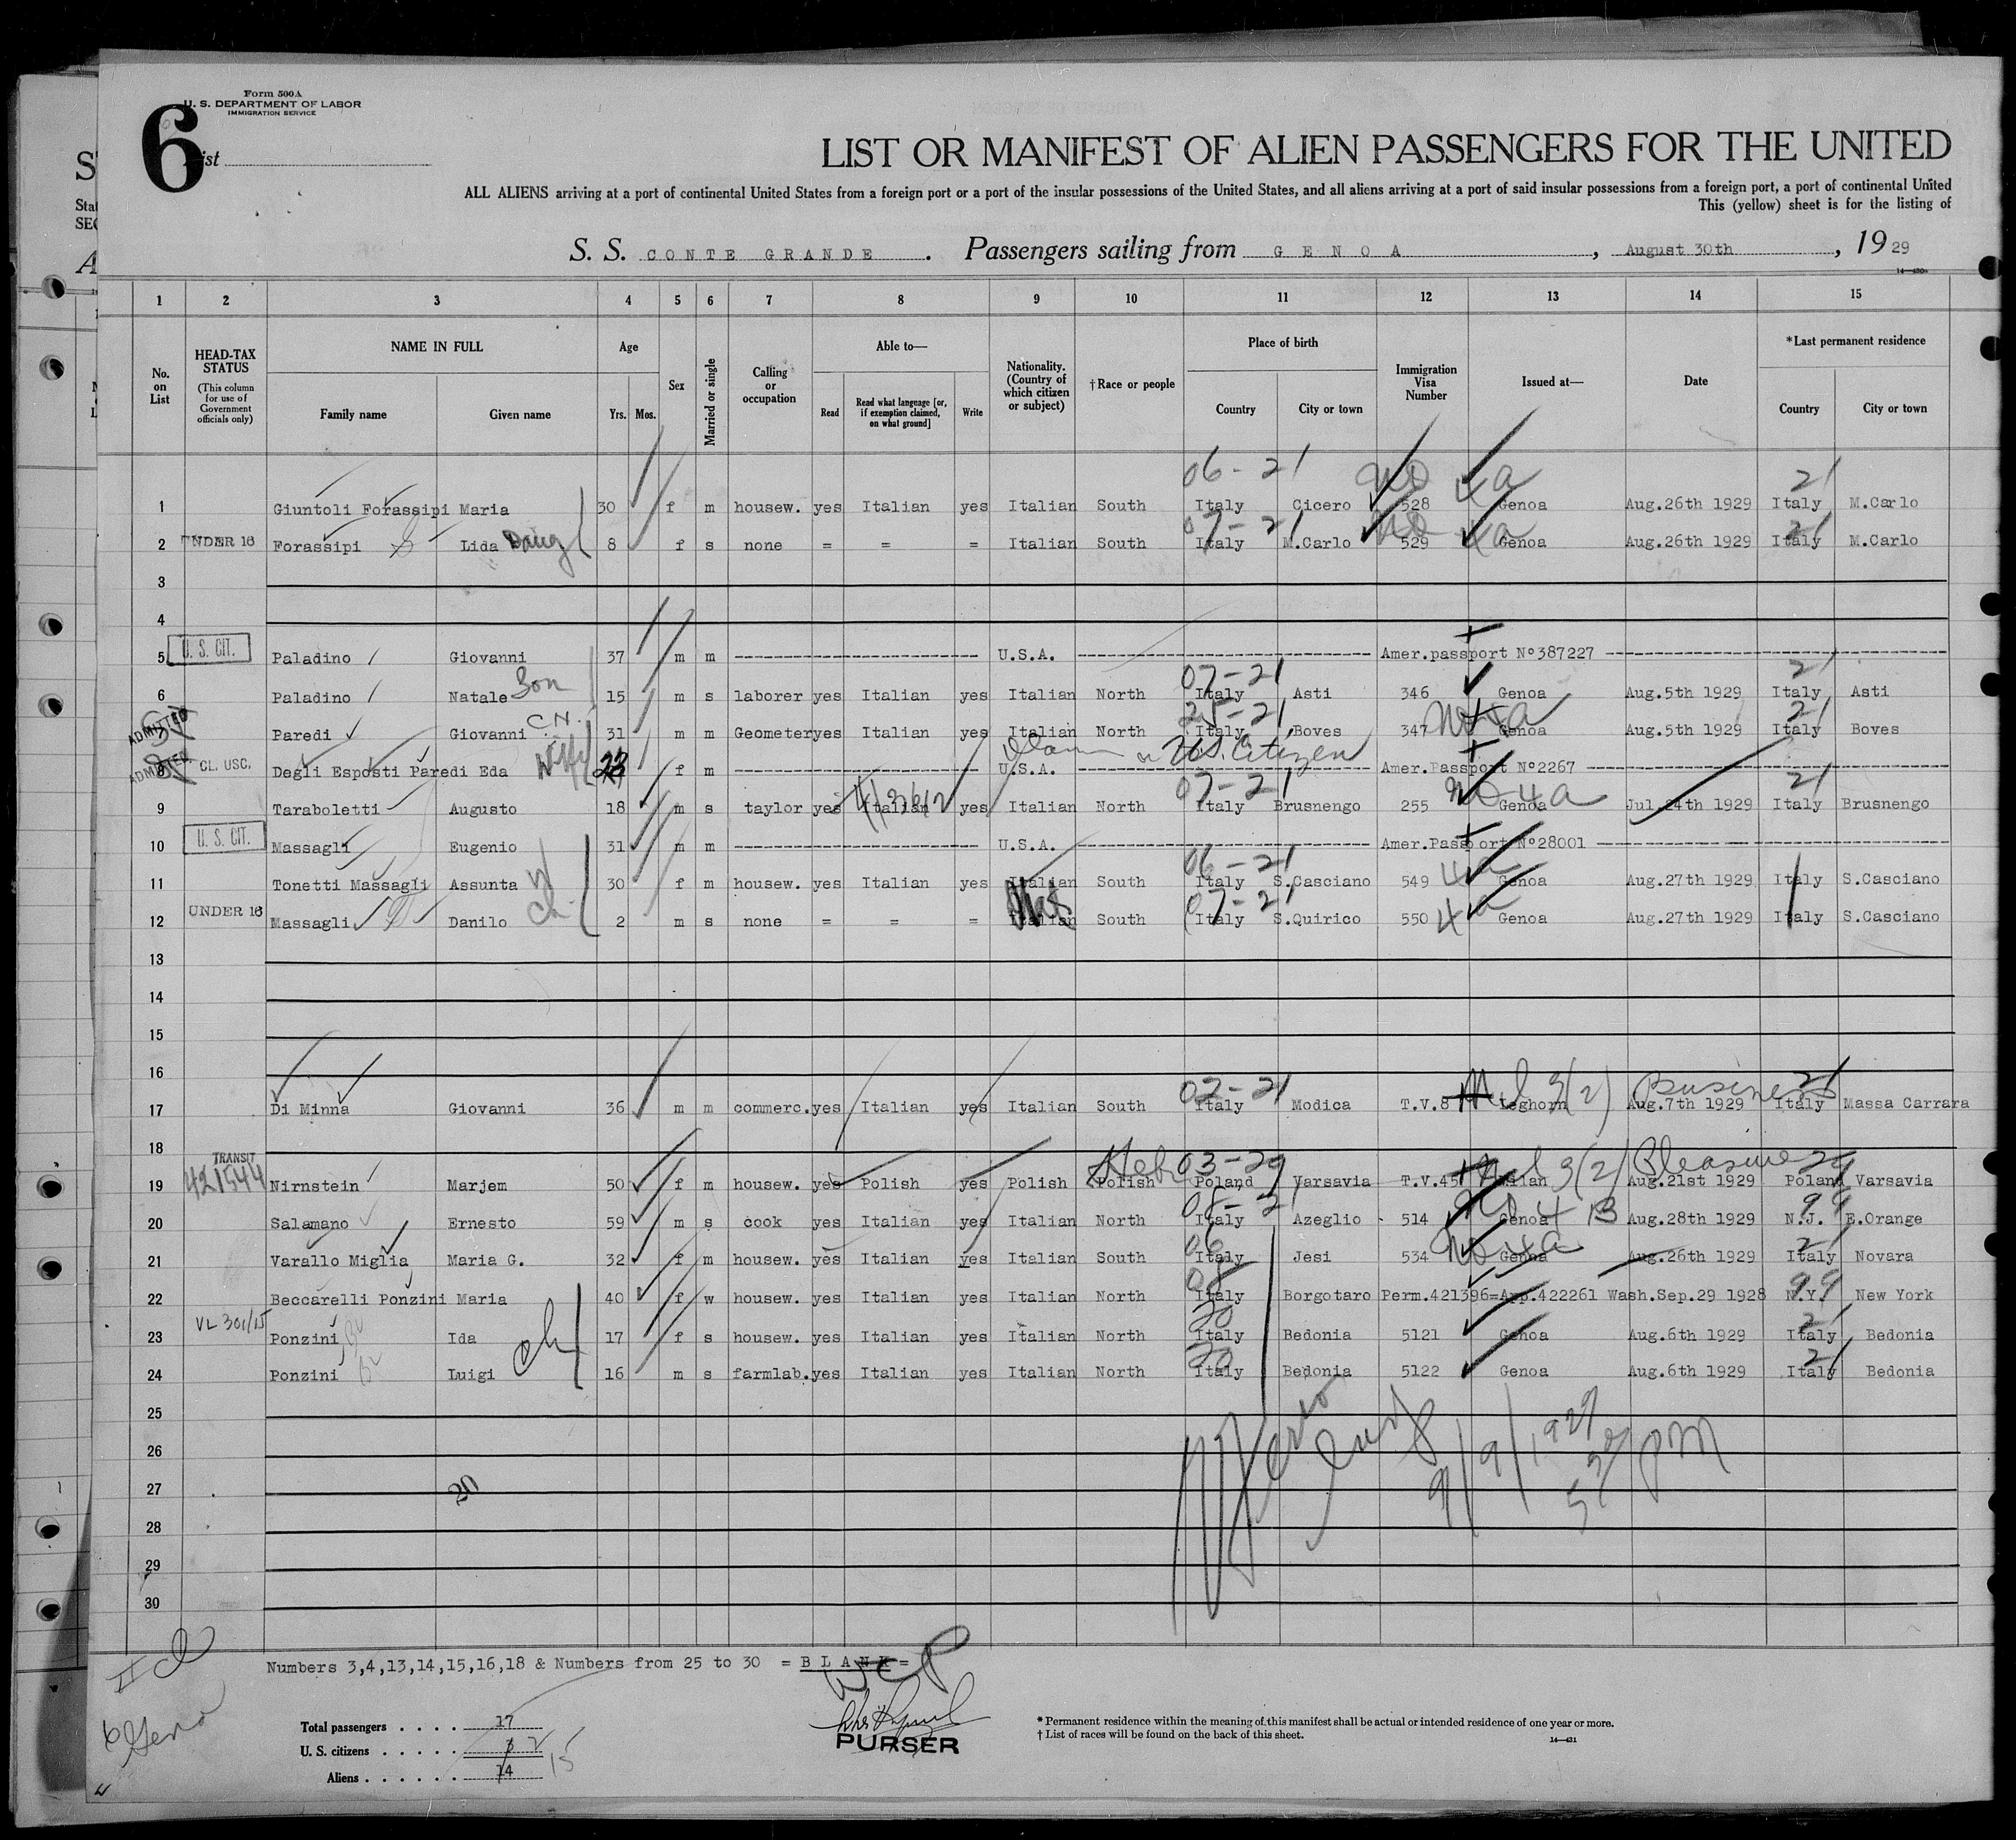 Form 500A
U. S. DEPARTMENT OF LABOR
IMMIGRATION SERVICE
6
List
LIST OR MANIFEST OF ALIEN PASSENGERS FOR THE UNITED
ALL ALIENS arriving at a port of continental United States from a foreign port or a port of the insular possessions of the United States, and all aliens arriving at a port of said insular possessions from a foreign port, a port of continental United
This (yellow) sheet is for the listing of
S. S. CONTE GRANDE . Passengers sailing from GENOA , August 30th , 19 29
1 2 3 4 5 6 7 8 9 10 11 12 13 14 15
No. on List
HEAD-TAX STATUS (This column for use of Government officials only)
NAME IN FULL Family name Given name
Age Yrs. Mos.
Sex
Married or single
Calling or occupation
Able to— Read Read what language [or, if exemption claimed, on what ground] Write
Nationality. (Country of which citizen or subject)
†Race or people
Place of birth Country City or town
Immigration Visa Number
Issued at—
Date
*Last permanent residence Country City or town
06-21 NO 4a 21
1 Giuntoli Forassipi Maria 30 f m housew. yes Italian yes Italian South Italy Cicero 528 Genoa Aug.26th 1929 Italy M.Carlo
07-21 NO 4a 21
2 UNDER 16 Forassipi Lida Daug 8 f s none = = = Italian South Italy M.Carlo 529 Genoa Aug.26th 1929 Italy M.Carlo
3
4
5 U. S. CIT. Paladino Giovanni 37 m m U.S.A. Amer.passport Nº387227
07-21 21
6 Paladino Natale Son 15 m s laborer yes Italian yes Italian North Italy Asti 346 Genoa Aug.5th 1929 Italy Asti
25-21 21
ADMITTED Paredi Giovanni 31 m m Geometer yes Italian yes Italian North Italy Boves 347 Genoa Aug.5th 1929 Italy Boves
U.S. Citizen
ADMITTED 8 CL. USC. Degli Esposti Paredi Eda Wife 23 f m U.S.A. Amer.Passport Nº2267
07-21 NO 4a 21
9 Taraboletti Augusto 18 m s taylor yes Italian yes Italian North Italy Brusnengo 255 Genoa Jul.24th 1929 Italy Brusnengo
10 U. S. CIT. Massagli Eugenio 31 m m U.S.A. Amer.Passport Nº28001
06-21 4a
11 Tonetti Massagli Assunta W 30 f m housew. yes Italian yes Italian South Italy S.Casciano 549 Genoa Aug.27th 1929 Italy S.Casciano
07-21 4a
12 UNDER 16 Massagli Danilo Ch. 2 m s none = = = Italian South Italy S.Quirico 550 Genoa Aug.27th 1929 Italy S.Casciano
13
14
15
16
02-21 3(2) Business 21
17 Di Minna Giovanni 36 m m commerc. yes Italian yes Italian South Italy Modica T.V.8 Leghorn Aug.7th 1929 Italy Massa Carrara
18
TRANSIT 421544 Heb 03-29 3(2) Pleasure 29
19 Nirnstein Marjem 50 f m housew. yes Polish yes Polish Polish Poland Varsavia T.V.45 Milan Aug.21st 1929 Poland Varsavia
08-21 NO 4 B 99
20 Salamano Ernesto 59 m s cook yes Italian yes Italian North Italy Azeglio 514 Genoa Aug.28th 1929 N.J. E.Orange
06 NO 4a 21
21 Varallo Miglia Maria G. 32 f m housew. yes Italian yes Italian South Italy Jesi 534 Genoa Aug.26th 1929 Italy Novara
99
22 Beccarelli Ponzini Maria 40 f w housew. yes Italian yes Italian North Italy Borgotaro Perm.421396=App.422261 Wash.Sep.29 1928 N.Y. New York
VL 301/15 20 21
23 Ponzini Ida 17 f s housew. yes Italian yes Italian North Italy Bedonia 5121 Genoa Aug.6th 1929 Italy Bedonia
ch 20 21
24 Ponzini Luigi 16 m s farmlab. yes Italian yes Italian North Italy Bedonia 5122 Genoa Aug.6th 1929 Italy Bedonia
25
26
27
28
29
30
20
9/9/1929
5 30 PM
Numbers 3,4,13,14,15,16,18 & Numbers from 25 to 30 = BLANK =
WCP
PURSER
Total passengers . . . . 17
U. S. citizens . . . . . 3 2
Aliens . . . . . . 14 15
* Permanent residence within the meaning of this manifest shall be actual or intended residence of one year or more.
† List of races will be found on the back of this sheet.
14—431